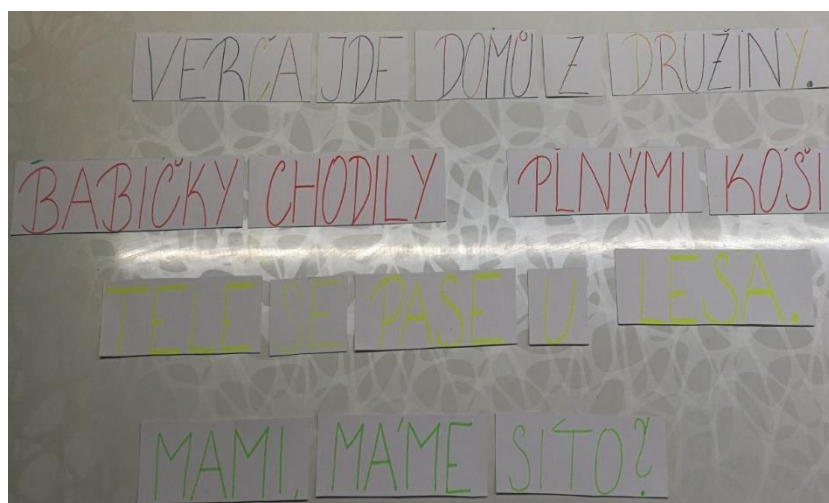 VERČA JDE DOMŮ Z DRUŽINY.
BABIČKY CHODILY PLNÝMI KOŠI
TELE SE PASE U LESA.
MAMI, MÁME SÍTO?